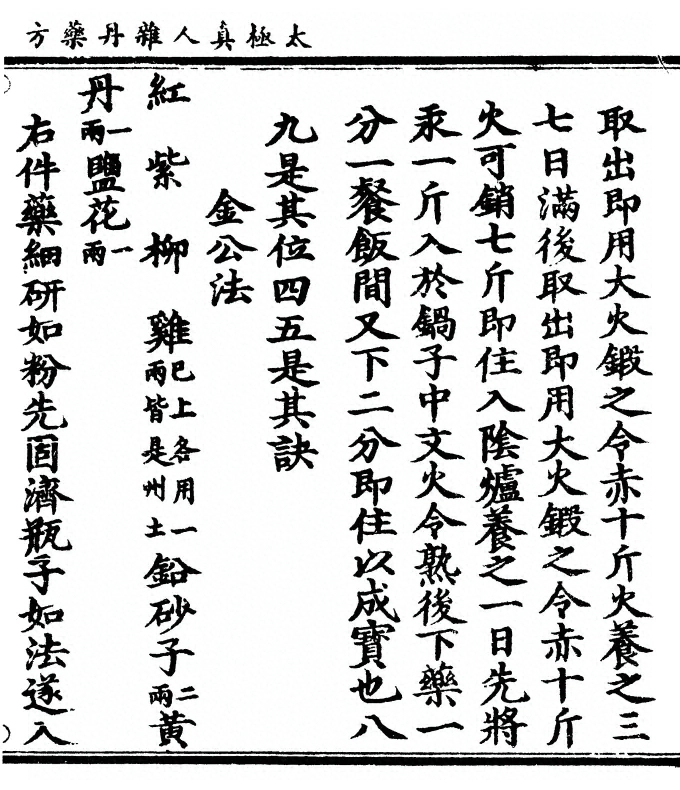 太極真人雜丹藥方
取出即用大火鍛之令赤十斤火養之三
七日滿後取出即用大火鍛之令赤十斤
火可銷七斤即住入陰爐養之一日先將
汞一斤入於鍋子中文火令熟後下藥一
分一餐飯間又下二分即住以成寶也八
九是其位四五是其訣
金公法
紅紫柳雞巳上各用一兩皆是州土鉛砂子二兩黃
丹一兩鹽花一兩
右件藥細研如粉先固濟瓶子如法遂入